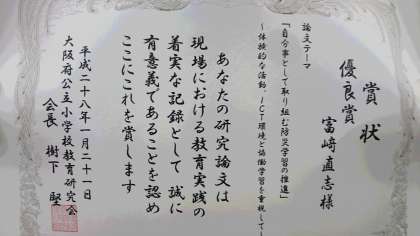 賞状
優良賞
富﨑直志様
論文テーマ
「自分事として取り組む防災学習の推進」
～体験的な活動、ICT環境と協働学習を重視して～
あなたの研究論文は
現場における教育実践の
着実な記録として 誠に
有意義であることを認め
ここにこれを賞します
平成二十八年一月二十一日
大阪府公立小学校教育研究会
会長 樹下 堅